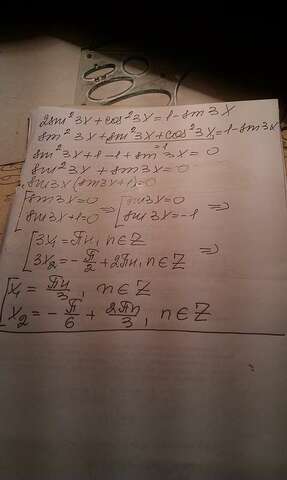 2sin²3x+cos²3x=1-sin3x
sin²3x+sin²3x+cos²3x=1-sin3x
=1
sin²3x+1-1+sin3x=0
sin²3x+sin3x=0
sin3x(sin3x+1)=0
[sin3x=0 ⇒ [sin3x=0 ⇒
[sin3x+1=0 [sin3x=-1
[3x₁=πn, n∈Z ⇒
[3x₂=-π/2+2πn, n∈Z
[x₁=πn/3, n∈Z
[x₂=-π/6+2πn/3, n∈Z